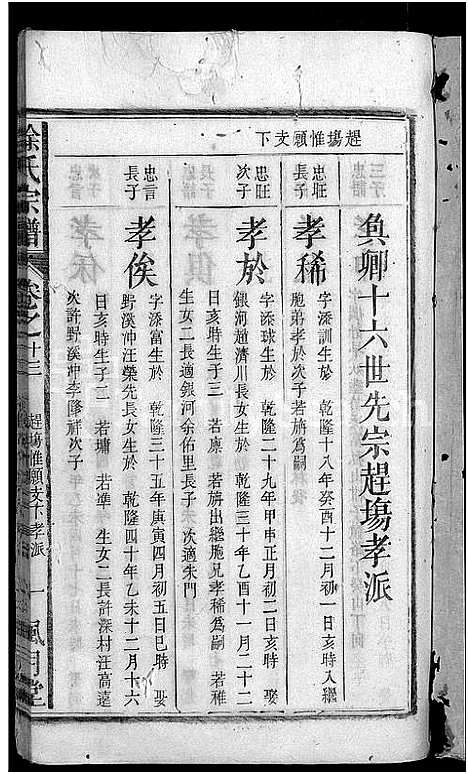 趕塲惟願支下
㒷卿十六世先宗趕塲孝派
忠旺
長子
孝稀
字添訓生於 乾隆十八年癸酉十二月初一日亥時入繼
胞弟孝於次子若旂爲嗣
忠旺
次子
孝於
字添球生於 乾隆二十九年甲申正月初二日亥時 娶
銀河趙濟川長女生於 乾隆三十年乙酉十一月二十二
日亥時生子三 若禀 若旂出繼胞兄孝稀爲嗣 若稚
生女二長適銀河余佑里長子 次適朱門
忠言
長子
孝俟
字添富生於 乾隆三十五年庚寅四月初五日巳時 娶
野溪冲汪榮先長女生於 乾隆四十年乙未十二月十六
日亥時生子二 若墉 若準 生女二長許深村汪高遠
次許野溪冲李隆祥次子
徐氏宗譜
卷之十三
趕塲惟願支下孝派
一
風月堂